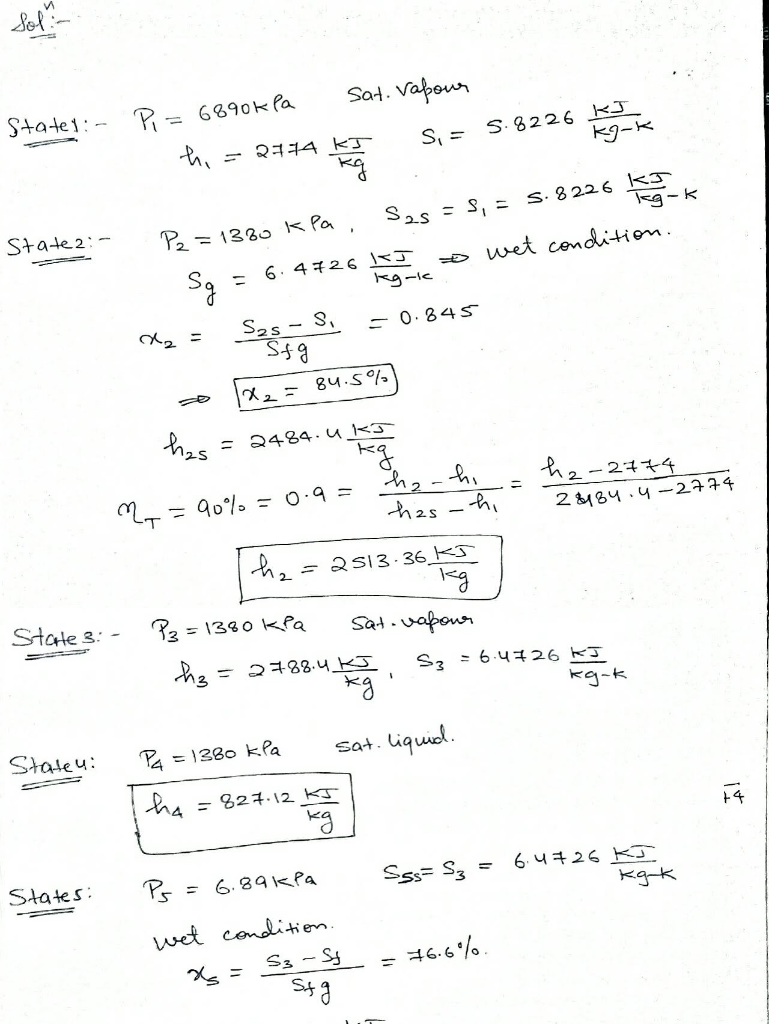 Solⁿ:-
State1:- P₁ = 6890kPa Sat. Vapour
h₁ = 2774 kJ/kg S₁ = 5.8226 kJ/kg-k
State2:- P₂ = 1380 kPa, S₂s = S₁ = 5.8226 kJ/kg-k
Sg = 6.4726 kJ/kg-k ⇒ wet condition.
x₂ = (S₂s - S₁)/Sfg = 0.845
⇒ x₂ = 84.5%
h₂s = 2484.4 kJ/kg
η_T = 90% = 0.9 = (h₂ - h₁)/(h₂s - h₁) = (h₂ - 2774)/(2484.4 - 2774)
h₂ = 2513.36 kJ/kg
State 3:- P₃ = 1380 kPa Sat. vapour
h₃ = 2788.4 kJ/kg, S₃ = 6.4726 kJ/kg-k
State4: P₄ = 1380 kPa sat. liquid.
h₄ = 827.12 kJ/kg
State5: P₅ = 6.89kPa S₅s = S₃ = 6.4726 kJ/kg-k
wet condition.
x₅ = (S₃ - Sf)/Sfg = 76.6%.